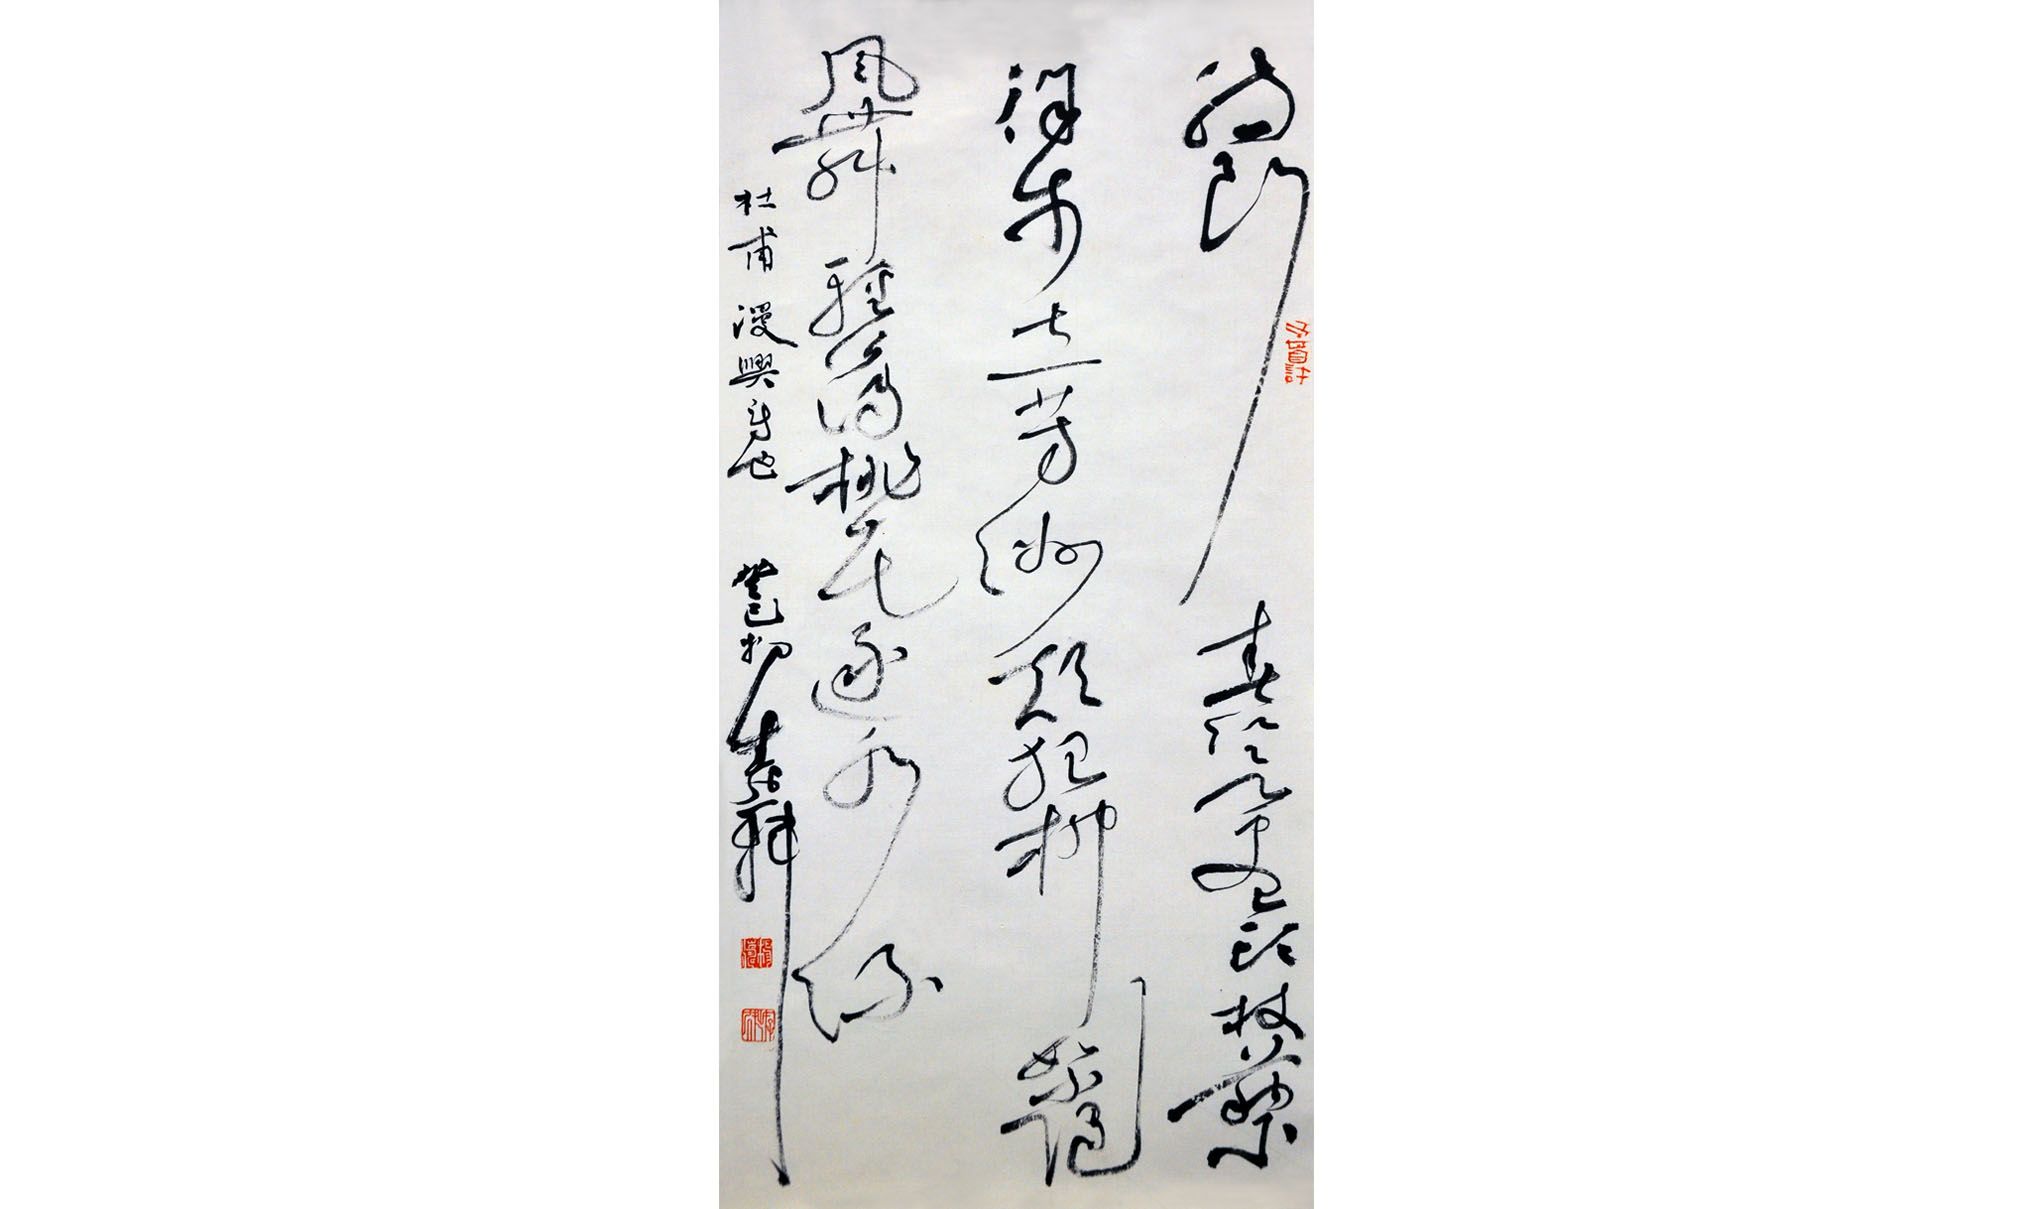 腸断春江欲盡頭杖藜
徐步立芳洲顛狂柳絮随
風舞輕薄桃花逐水流
杜甫漫興詩也 癸巳初